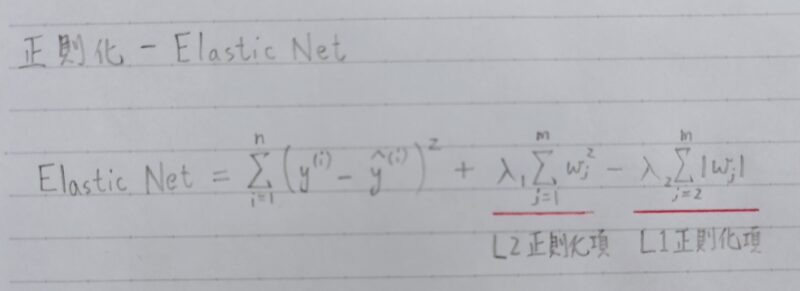 正則化 - Elastic Net
Elastic Net = \sum_{i=1}^{n} (y^{(i)} - \hat{y}^{(i)})^2 + λ_1 \sum_{j=1}^{m} w_j^2 - λ_2 \sum_{j=2}^{m} |w_j|
L2正則化項 L1正則化項